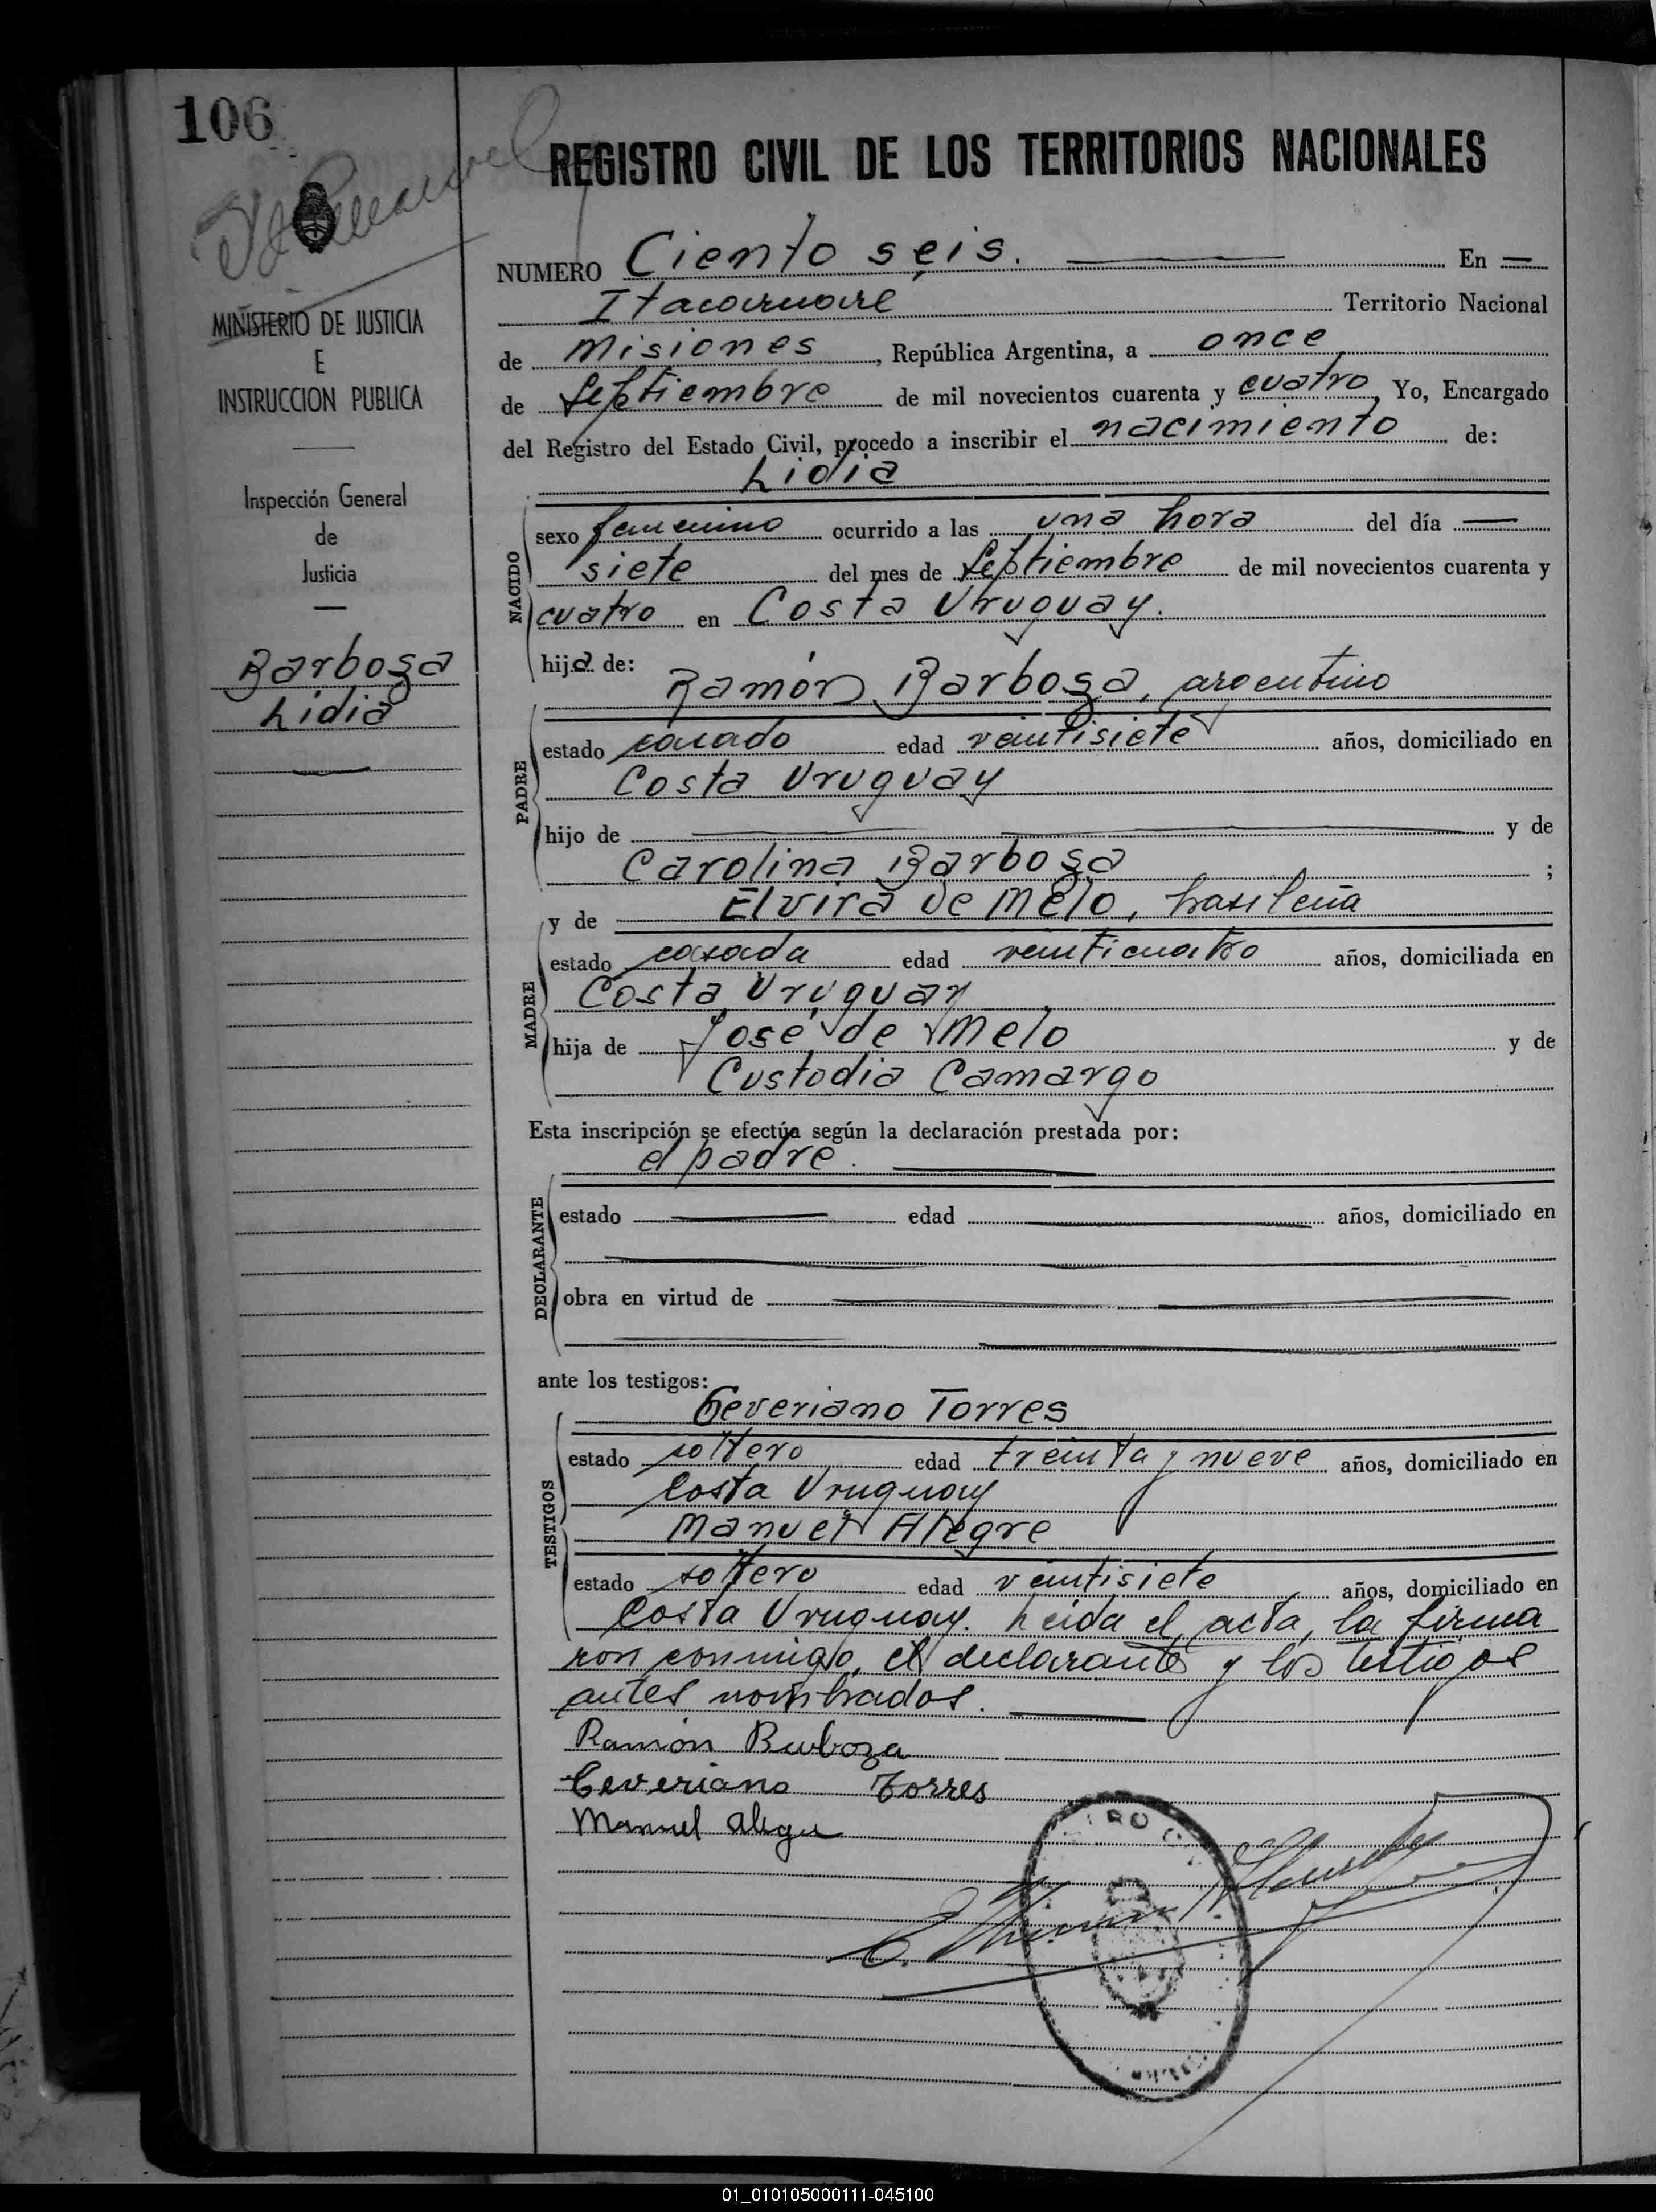 106
REGISTRO CIVIL DE LOS TERRITORIOS NACIONALES
MINISTERIO DE JUSTICIA
E
INSTRUCCION PUBLICA
Inspección General
de
Justicia
Barbosa
Lidia
NUMERO Ciento seis. En
Itacaruaré Territorio Nacional
de Misiones, República Argentina, a once
de Septiembre de mil novecientos cuarenta y cuatro, Yo, Encargado
del Registro del Estado Civil, procedo a inscribir el nacimiento de:
Lidia
NACIDO
sexo femenino ocurrido a las una hora del día
siete del mes de Septiembre de mil novecientos cuarenta y
cuatro en Costa Uruguay.
hija de:
Ramón Barbosa, argentino
PADRE
estado casado edad veintisiete años, domiciliado en
Costa Uruguay
hijo de y de
Carolina Barbosa ;
y de Elvira de Melo, brasileña
MADRE
estado casada edad veinticuatro años, domiciliada en
Costa Uruguay
hija de José de Melo y de
Custodia Camargo
Esta inscripción se efectúa según la declaración prestada por:
el padre.
DECLARANTE
estado edad años, domiciliado en
obra en virtud de
ante los testigos:
Severiano Torres
TESTIGOS
estado soltero edad treinta y nueve años, domiciliado en
Costa Uruguay
Manuel Alegre
estado soltero edad veintisiete años, domiciliado en
Costa Uruguay. Leida el acta, la firma
ron conmigo, el declarante y los testigos
antes nombrados.
Ramón Barboza
Ceveriano Torres
Manuel Alegre
01_010105000111-045100